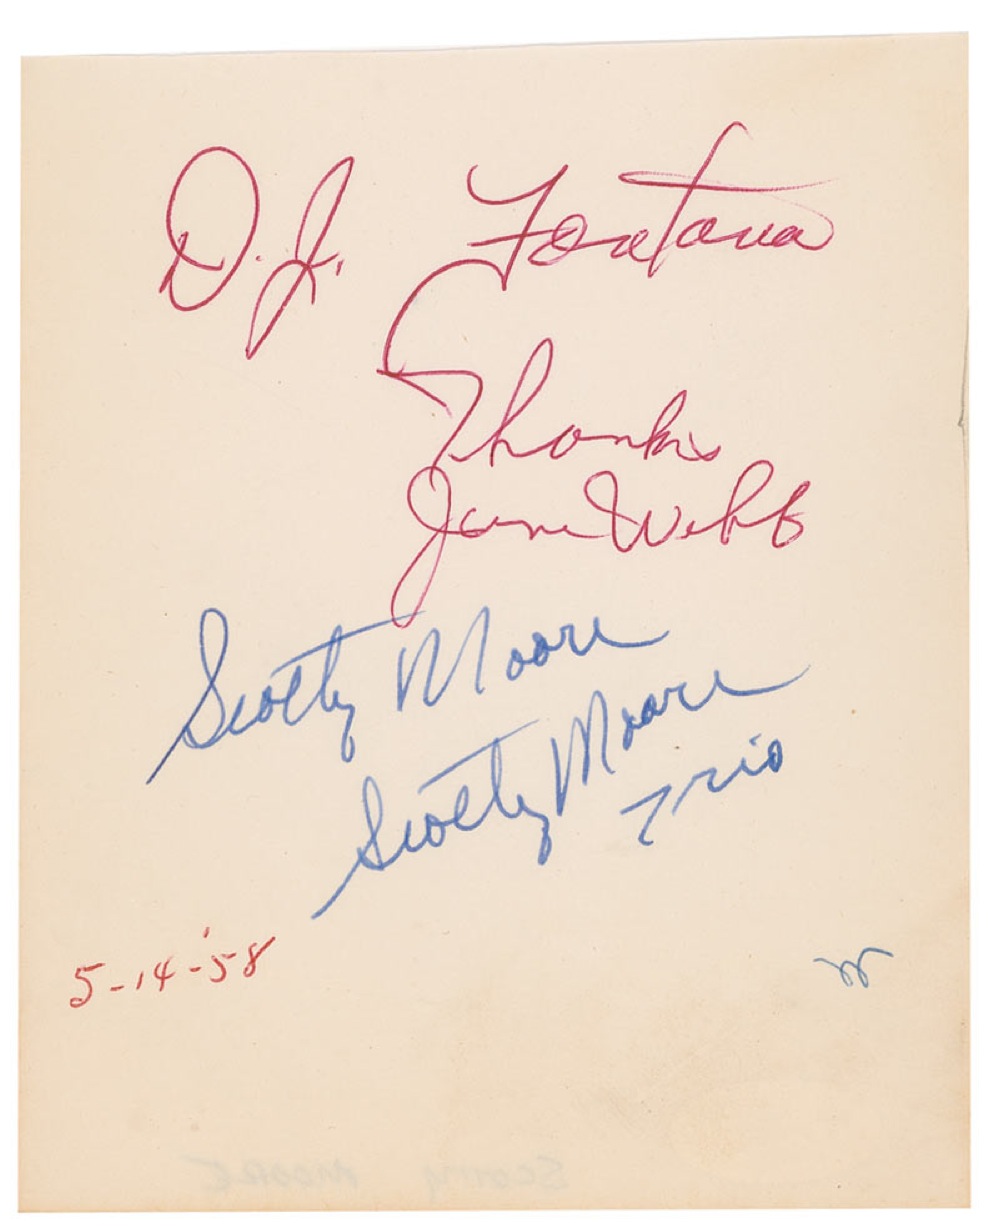 D.J. Fontana
Thanks
June Webb
Scotty Moore
Scotty Moore
Trio
5-14-'58
Scotty Moore